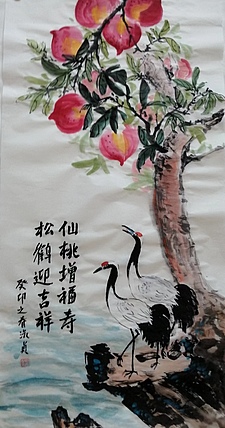 仙桃增福寿
松鹤迎吉祥
癸卯之春